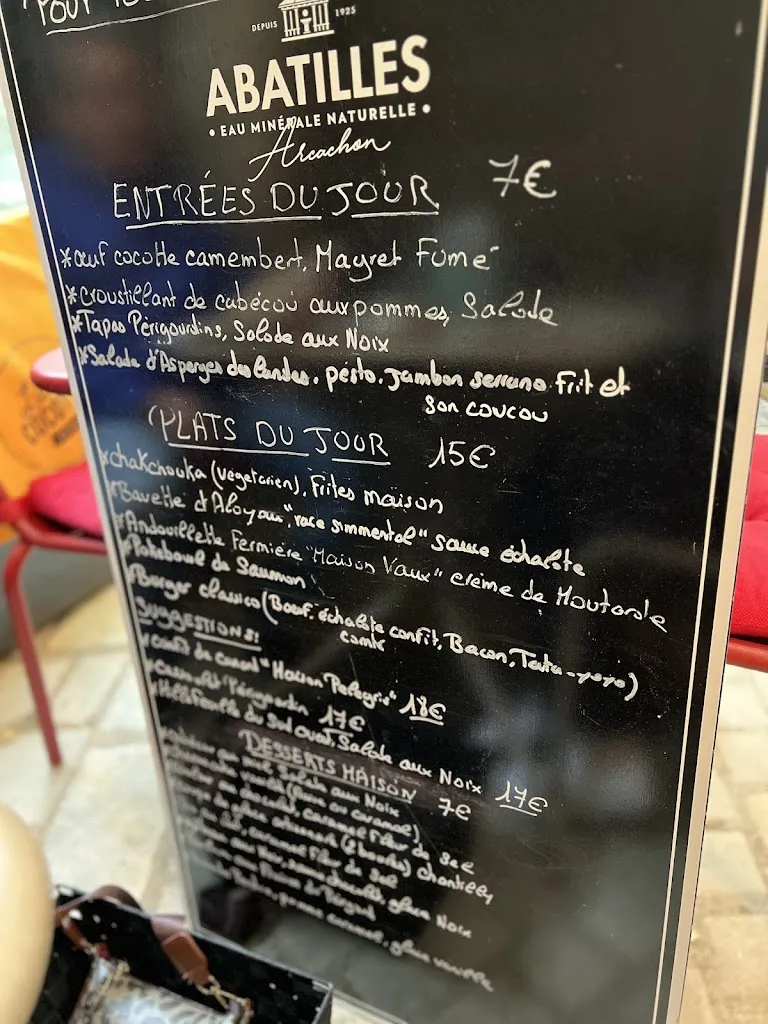 POUR
DEPUIS 1925
ABATILLES
• EAU MINÉRALE NATURELLE •
Arcachon
ENTRÉES DU JOUR 7€
*œuf cocotte camembert, Magret Fumé
*croustillant de cabécou aux pommes, Salade
*Tapas Périgourdins, Salade aux Noix
*Salade d'Asperges des Landes, pesto, jambon serrano. Frit et
son coucou
PLATS DU JOUR 15€
*chakchouka (végétarien), Frites maison
*Bavette d'Aloyau "race simmental" sauce échalote
*Andouillette Fermière "Maison Vaux" crème de Moutarde
*Pokebowl de Saumon
*Burger classico (Bœuf, échalote confit, Bacon, Tata-yoyo)
comté
SUGGESTIONS:
*confit de canard "Maison Pelegris" 18€
*cassoulet Périgourdin 17€
*Millefeuille du Sud Ouest, Salade aux Noix 17€
DESSERTS MAISON 7€
Salade aux Noix
(Rhum ou caramel)
au chocolat, caramel Fleur de Sel
de glace artisanale (2 boules) chantilly
caramel Fleur de Sel
aux Noix, sauce chocolat, glace Noix
du Périgord
Tatin, pomme caramel, glace vanille